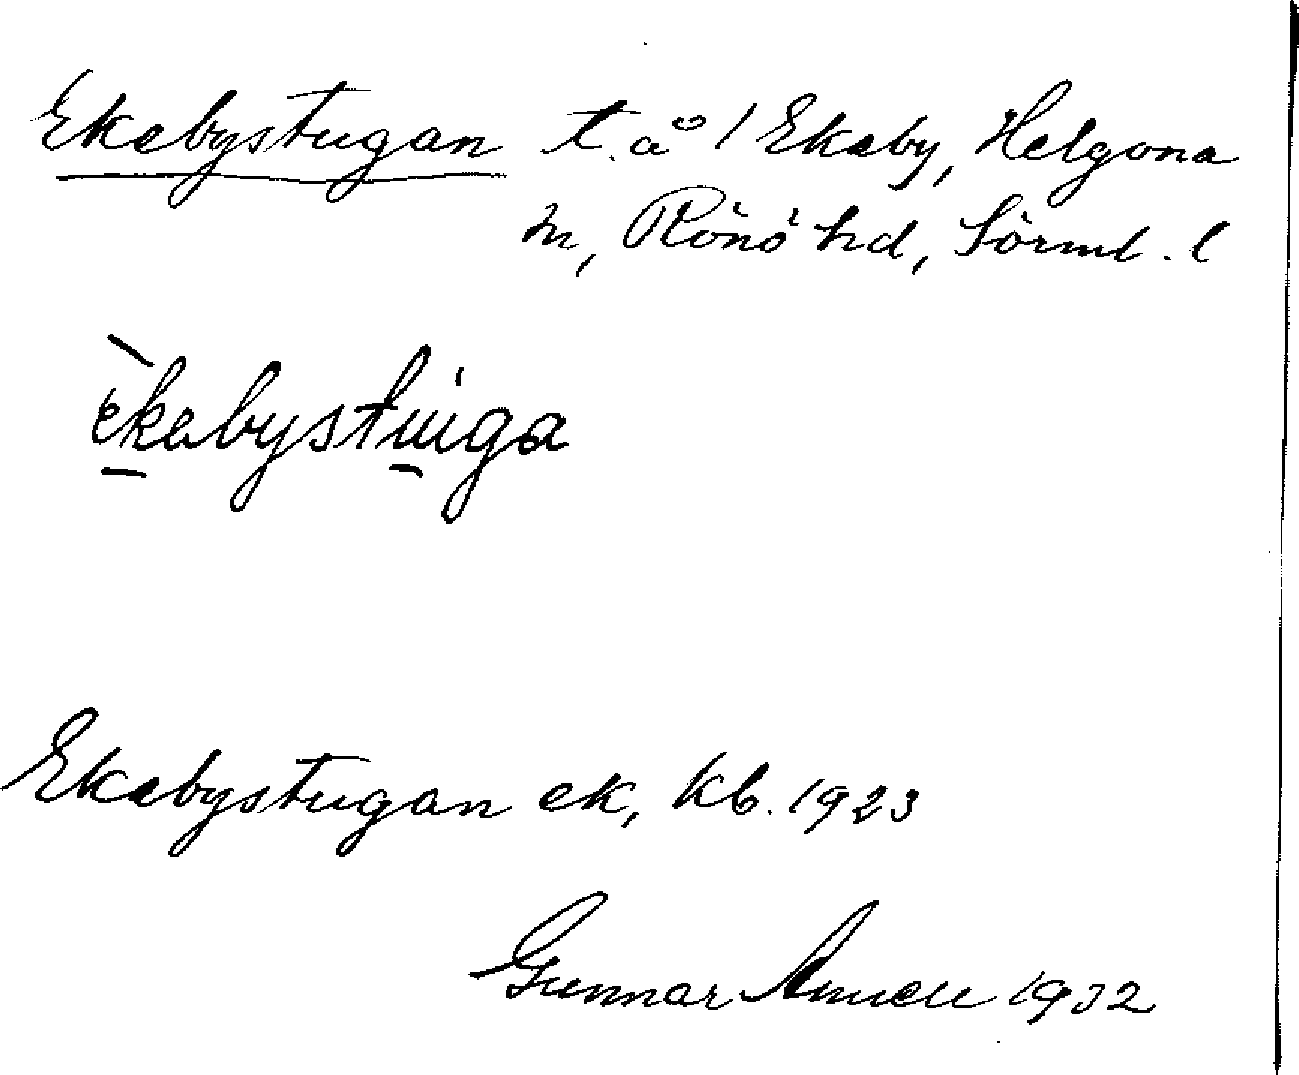 Ekebystugan t. å 1 Ekeby, Helgona
sn, Rönö hd, Sörml. l
èkebystúga
Ekebystugan ek, kb. 1923
Gunnar Amnell 1932